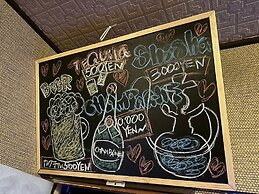 BEER
TEQUILA
500YEN
Shisha
3000YEN
CHAMPAGNE
10.000
YEN~
CHAMPAGNE
500YEN